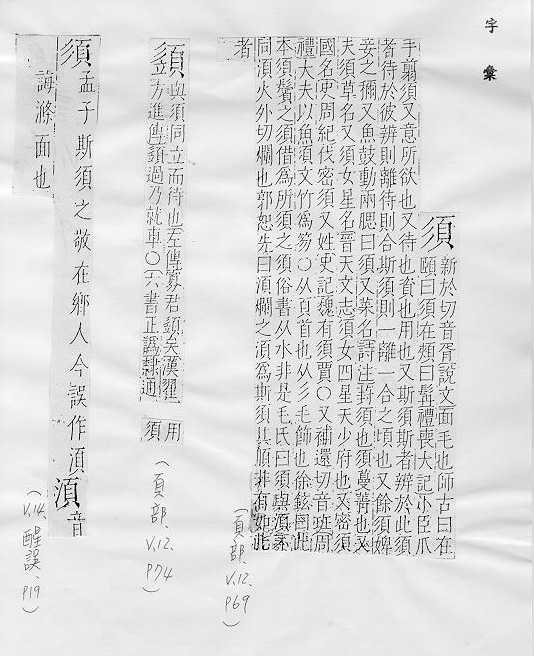 字彙
須 新於切音胥說文面毛也師古曰在
頤曰須在頰曰髯禮喪大記小臣爪
手翦須又意所欲也又待也資也用也又斯須斯者辨於此須
者待於彼辨則離待則合斯須則一離一合之頃也又餘須婢
妾之稱又魚鼓動兩腮曰須又菜名詩注葑須也須蔓菁也又
夫須草名又須女星名晉天文志須女四星天少府也又密須
國名史周紀伐密須又姓史記魏有須賈〇又補還切音班周
禮大夫以魚須文竹為笏〇从頁首也从彡毛飾也徐鉉曰此
本須鬢之須借為所須之須俗書从水非是毛氏曰須與湏
同湏火外切爛也郭恕先曰湏爛之湏為斯須其順非有如此
者
䇓 與須同立而待也左傳寡君
方進傳 過乃就車〇六書正譌隸通
用須
須 孟子斯須之敬在鄉人今誤作湏 湏 音
誨滌面也
(頁部、V.12、P69)
(頁部、V.12、P74)
(V.14、醒誤、P19)